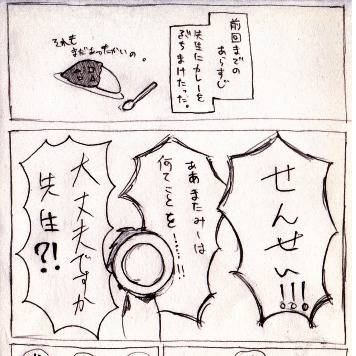 前回までの
あらすじ
先生にカレーを
ぶちまけたった。
それも
まだあったかいの。
せんせい!!!
ああまたみーは
何てことを……!!!
大丈夫ですか
先生?!